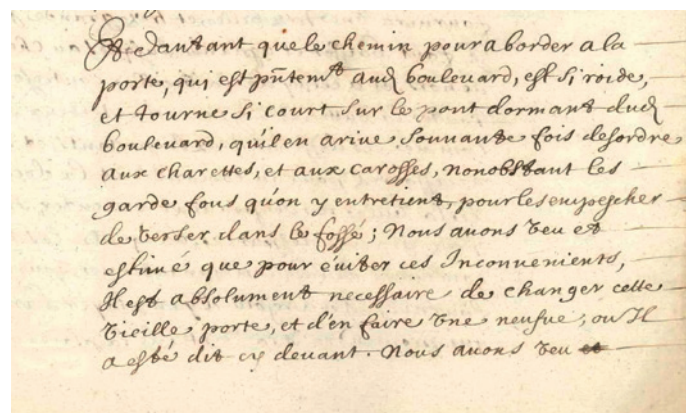 Et dautant que le chemin pour aborder a la
porte, qui est pñtemt aud boulevard, est si roide,
et tourne si court sur le pont dormant dud
boulevard, quil en arive souvante fois desordre
aux charettes, et aux carosses, nonobstant les
garde fous qu'on y entretient, pour les empescher
de verser dans le fossé; Nous avons veu et
estimé que pour éviter ces Inconvenients,
Il est absolument necessaire de changer cette
vieille porte, et d'en faire une neufue, ou Il
a esté dit cy devant. Nous avons veu et